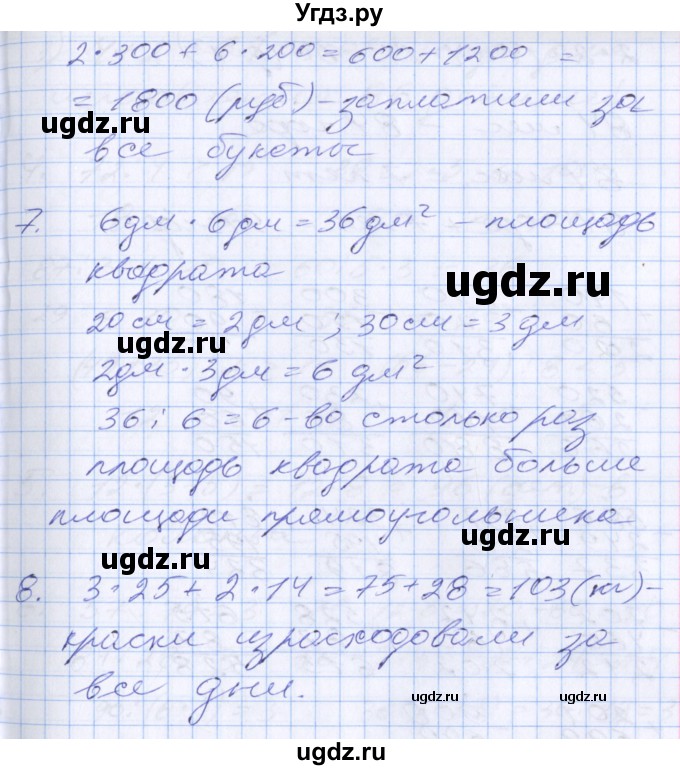 Угдз.ру
2·300+6·200=600+1200 =
=1800(руб)-заплатили за
ugdz.ru
все букеты
7. 6дм·6дм=36дм² - площадь
квадрата
ugdz.ru
20см = 2дм ; 30см = 3дм
ugdz.ru
2дм·3дм=6 дм²
36:6=6-во столько раз
площадь квадрата больше
площади прямоугольника
ugdz.ru
ugdz.ru
8. 3·25+2·14=75+28=103(кг)-
краски израсходовали за
все дни.
ugdz.ru
ugdz.ru
ugdz.ru